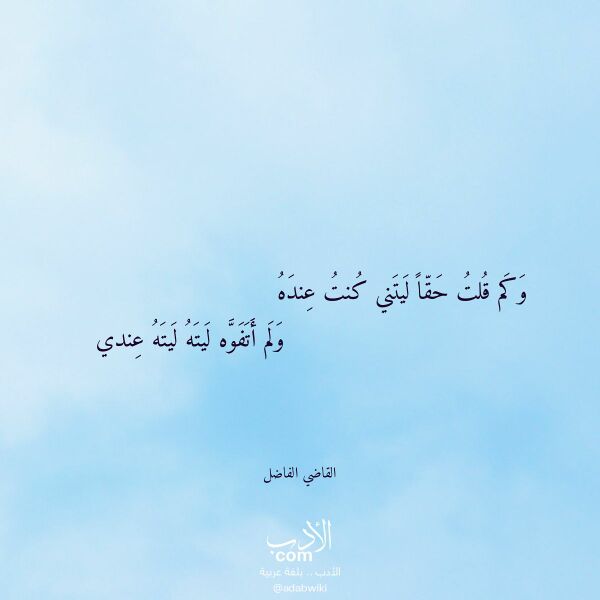 وَكَم قُلتُ حَقّاً لَيتَني كُنتُ عِندَهُ
وَلَم أَتَفَوَّه لَيتَهُ لَيتَهُ عِندي
القاضي الفاضل
الأدب
.com
الأدب .. بلغة عربية
@adabwiki